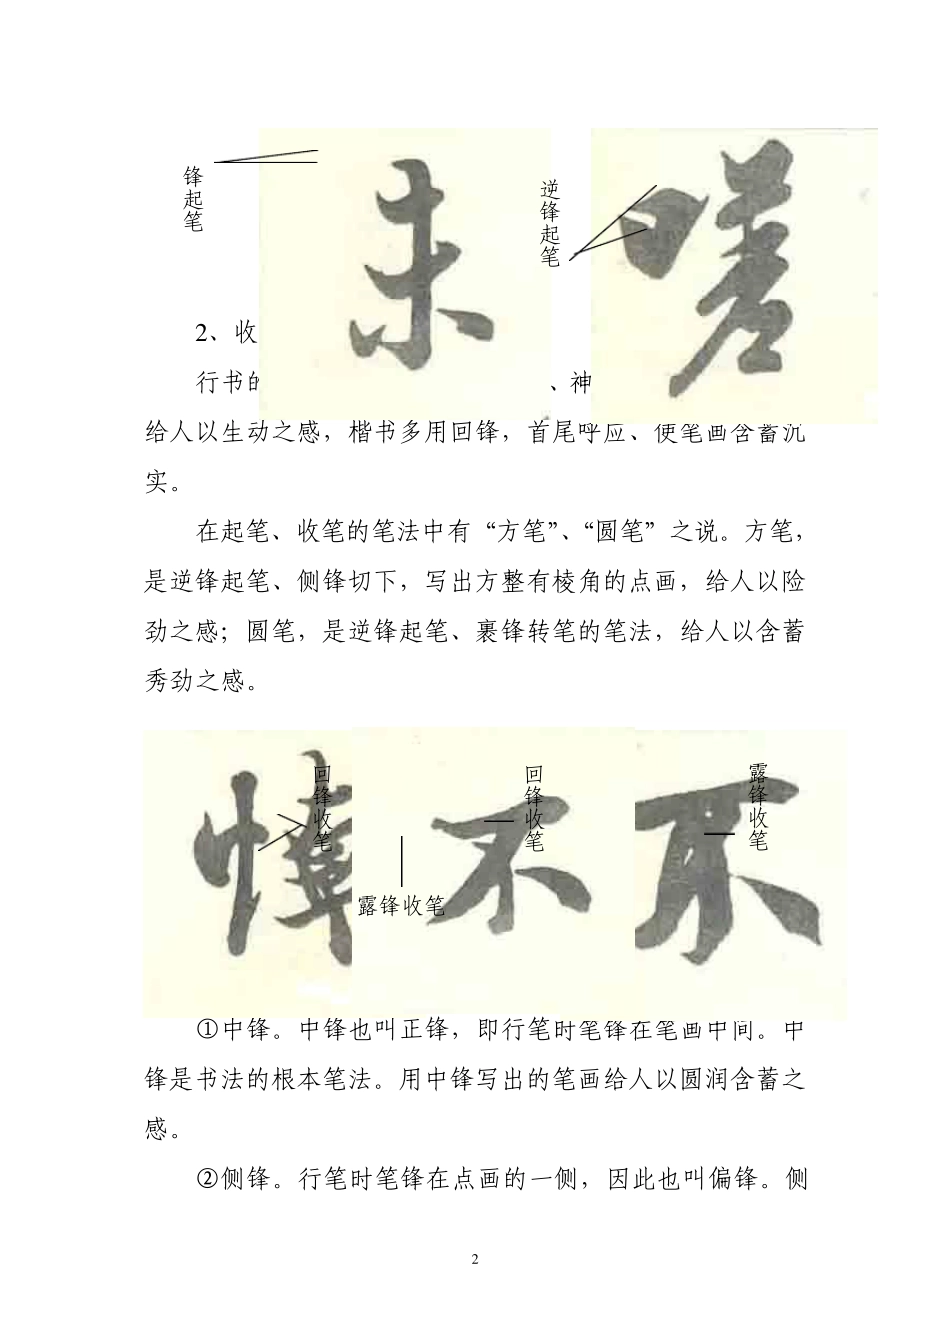 锋起笔
逆锋起笔
2、收
行书的
、神
给人以生动之感，楷书多用回锋，首尾呼应、使笔画含蓄沉
实。
在起笔、收笔的笔法中有“方笔”、“圆笔”之说。方笔，
是逆锋起笔、侧锋切下，写出方整有棱角的点画，给人以险
劲之感；圆笔，是逆锋起笔、裹锋转笔的笔法，给人以含蓄
秀劲之感。
回锋收笔
回锋收笔
露锋收笔
露锋收笔
不
①中锋。中锋也叫正锋，即行笔时笔锋在笔画中间。中
锋是书法的根本笔法。用中锋写出的笔画给人以圆润含蓄之
感。
②侧锋。行笔时笔锋在点画的一侧，因此也叫偏锋。侧
2